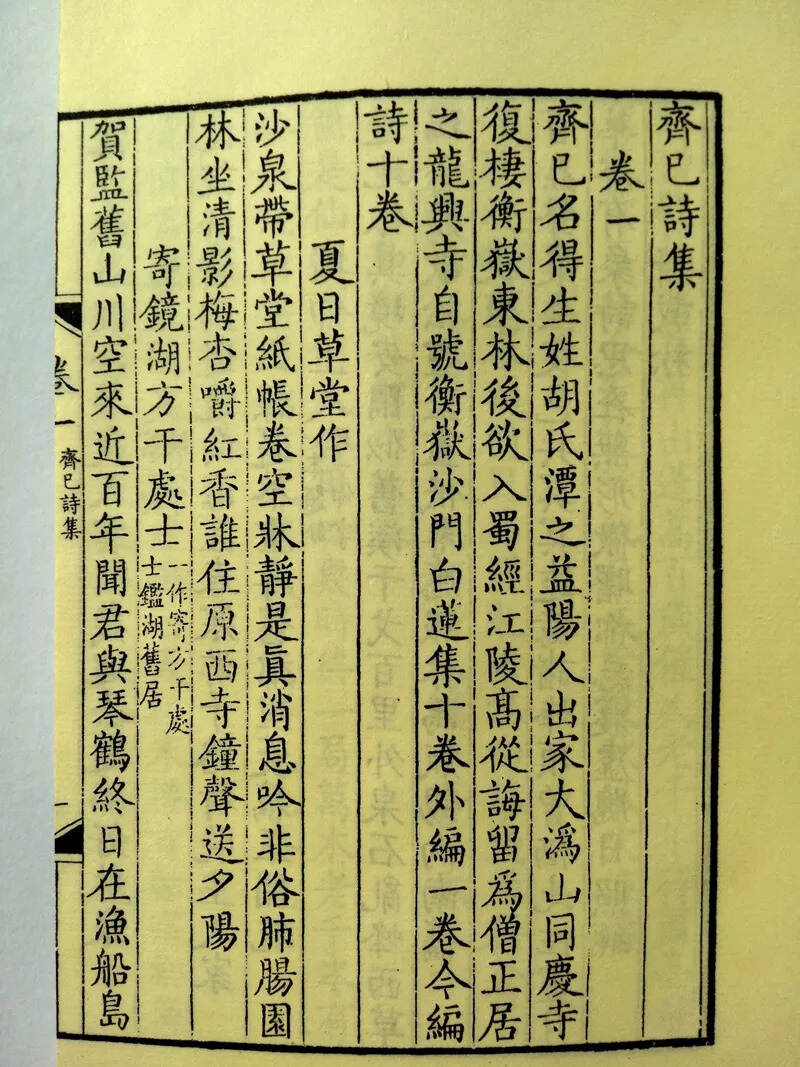 齊已詩集
卷一
齊已名得生姓胡氏潭之益陽人出家大潙山同慶寺
復棲衡嶽東林後欲入蜀經江陵髙從誨留爲僧正居
之龍興寺自號衡嶽沙門白蓮集十卷外編一卷今編
詩十卷
夏日草堂作
沙泉帶草堂紙帳卷空牀靜是眞消息吟非俗肺腸園
林坐清影梅杏嚼紅香誰住原西寺鐘聲送夕陽
寄鏡湖方干處士
一作寄方干處
士鑑湖舊居
賀監舊山川空來近百年聞君與琴鶴終日在漁船島
卷一
齊已詩集
一